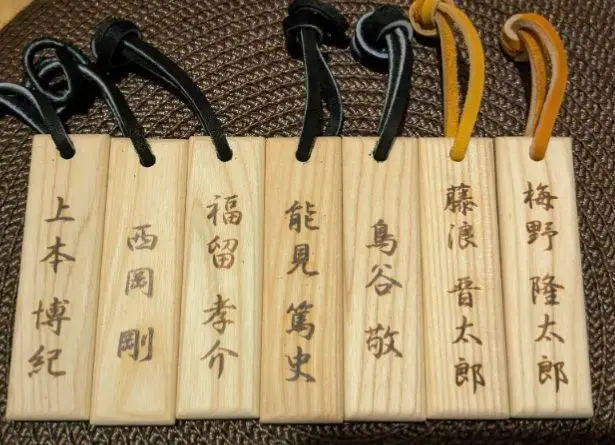 上本 博紀
西岡 剛
福留 孝介
能見 篤史
鳥谷 敬
藤浪 晋太郎
梅野 隆太郎